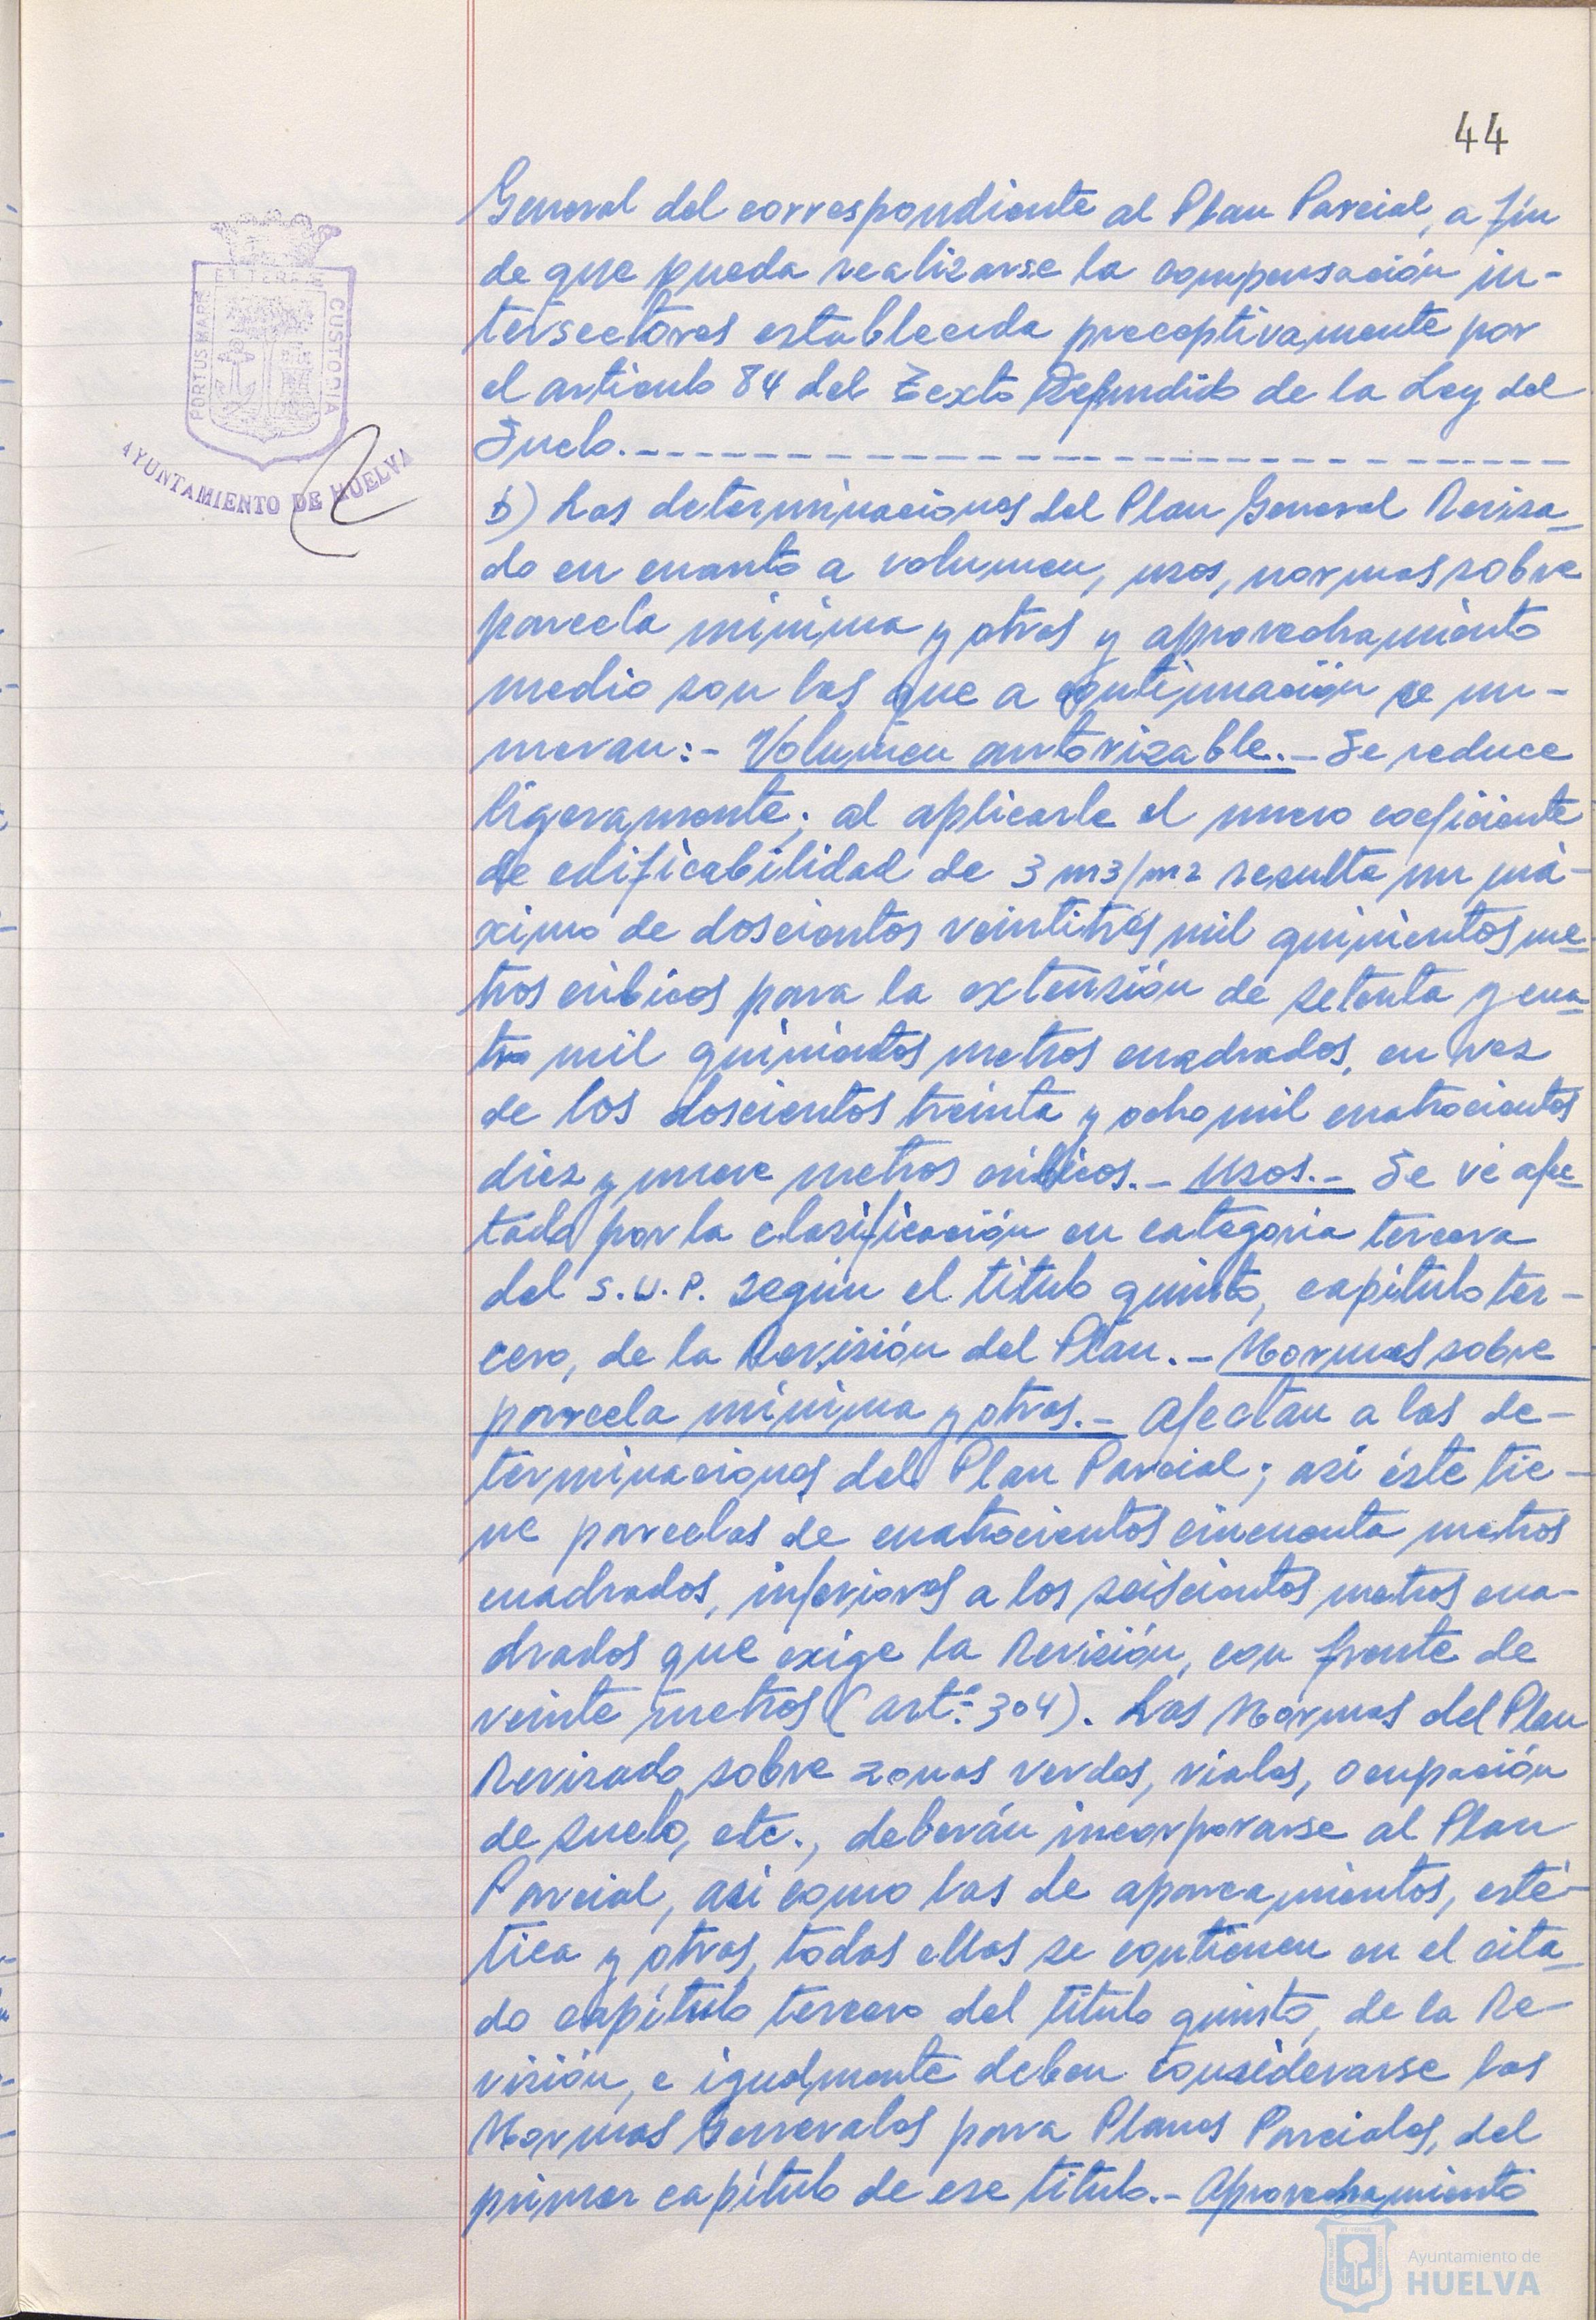 44
General del correspondiente al Plan Parcial, a fin
de que pueda realizarse la compensación in-
tersectores establecida preceptivamente por
el articulo 84 del Texto Refundido de la Ley del
Suelo.-
b) Las determinaciones del Plan General Revisa-
do en cuanto a volumen, usos, normas sobre
parcela minima y otras y aprovechamiento
medio son las que a continuación se nu-
meran:- Volumen autorizable.- Se reduce
ligeramente; al aplicarle el nuevo coeficiente
de edificabilidad de 3 m3/m2 resulta un má-
ximo de doscientos veintitrés mil quinientos me-
tros cúbicos para la extensión de setenta y cua-
tro mil quinientos metros cuadrados, en vez
de los doscientos treinta y ocho mil cuatrocientos
diez y nueve metros cúbicos.- Usos.- Se vé afec-
tado por la clasificación en categoria tercera
del S.U.P. según el titulo quinto, capitulo ter-
cero, de la Revisión del Plan.- Normas sobre
parcela minima y otras.- Afectan a las de-
terminaciones del Plan Parcial; asi éste tie-
ne parcelas de cuatrocientos cincuenta metros
cuadrados, inferiores a los seiscientos metros cua-
drados que exige la Revisión, con frente de
veinte metros (artº. 304). Las Normas del Plan
Revisado sobre zonas verdes, viales, ocupación
de suelo, etc., deberán incorporarse al Plan
Parcial, asi como las de aparcamientos, esté-
tica y otras, todas ellas se contienen en el cita-
do capitulo tercero del titulo quinto, de la Re-
visión, e igualmente deben considerarse las
Normas Generales para Planes Parciales, del
primer capitulo de ese titulo.- Aprovechamiento
PORTUS MARIS
ET TERRAE
CUSTODIA
AYUNTAMIENTO DE HUELVA
Ayuntamiento de
HUELVA